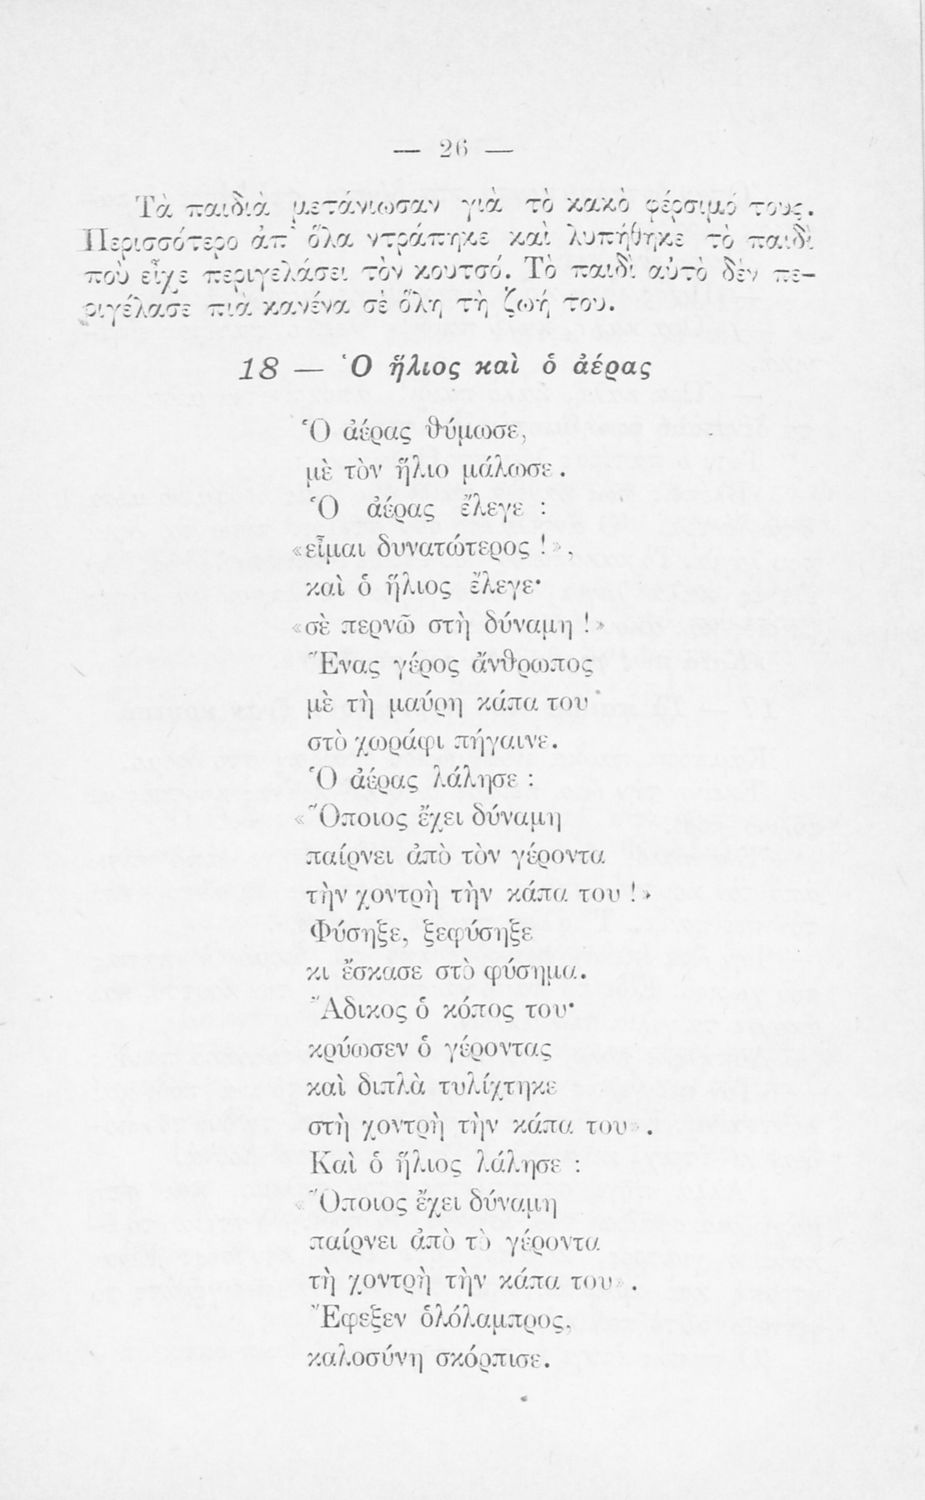 — 26 —
Τὰ παιδιὰ μετάνιωσαν γιὰ τὸ κακὸ φέρσιμό τους.
Περισσότερο ἀπ᾽ ὅλα ντράπηκε καὶ λυπήθηκε τὸ παιδὶ
ποὺ εἶχε περιγελάσει τὸν κουτσό. Τὸ παιδὶ αὐτὸ δὲν πε-
ριγέλασε πιὰ κανένα σὲ ὅλη τὴ ζωή του.
18 — Ὁ ἥλιος καὶ ὁ ἀέρας
Ὁ ἀέρας θύμωσε,
μὲ τὸν ἥλιο μάλωσε.
Ὁ ἀέρας ἔλεγε :
«εἶμαι δυνατώτερος !»,
καὶ ὁ ἥλιος ἔλεγε·
«σὲ περνῶ στὴ δύναμη !»
Ἕνας γέρος ἄνθρωπος
μὲ τὴ μαύρη κάπα του
στὸ χωράφι πήγαινε.
Ὁ ἀέρας λάλησε :
«Ὅποιος ἔχει δύναμη
παίρνει ἀπὸ τὸν γέροντα
τὴν χοντρὴ τὴν κάπα του !»
Φύσηξε, ξεφύσηξε
κι ἔσκασε στὸ φύσημα.
Ἄδικος ὁ κόπος του·
κρύωσεν ὁ γέροντας
καὶ διπλὰ τυλίχτηκε
στὴ χοντρὴ τὴν κάπα του».
Καὶ ὁ ἥλιος λάλησε :
«Ὅποιος ἔχει δύναμη
παίρνει ἀπὸ τὸ γέροντα
τὴ χοντρὴ τὴν κάπα του».
Ἔφεξεν ὁλόλαμπρος,
καλοσύνη σκόρπισε.